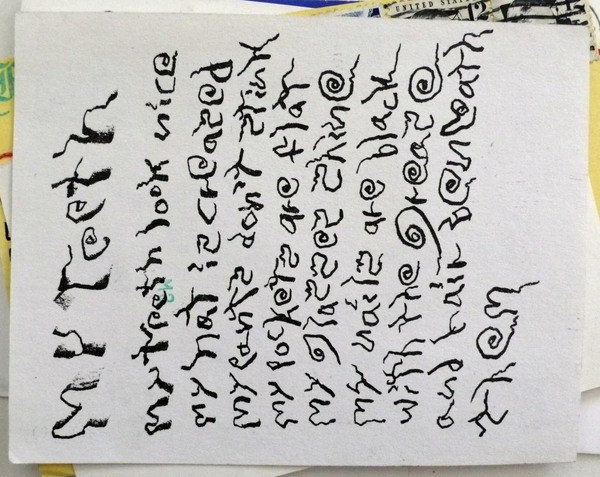 UNITED STATES
My Teeth
my teeth look nice
my hat is creased
my pants don't stink
my pockets are flat
my glasses shine
my nails are black
with the grease
and hair beneath